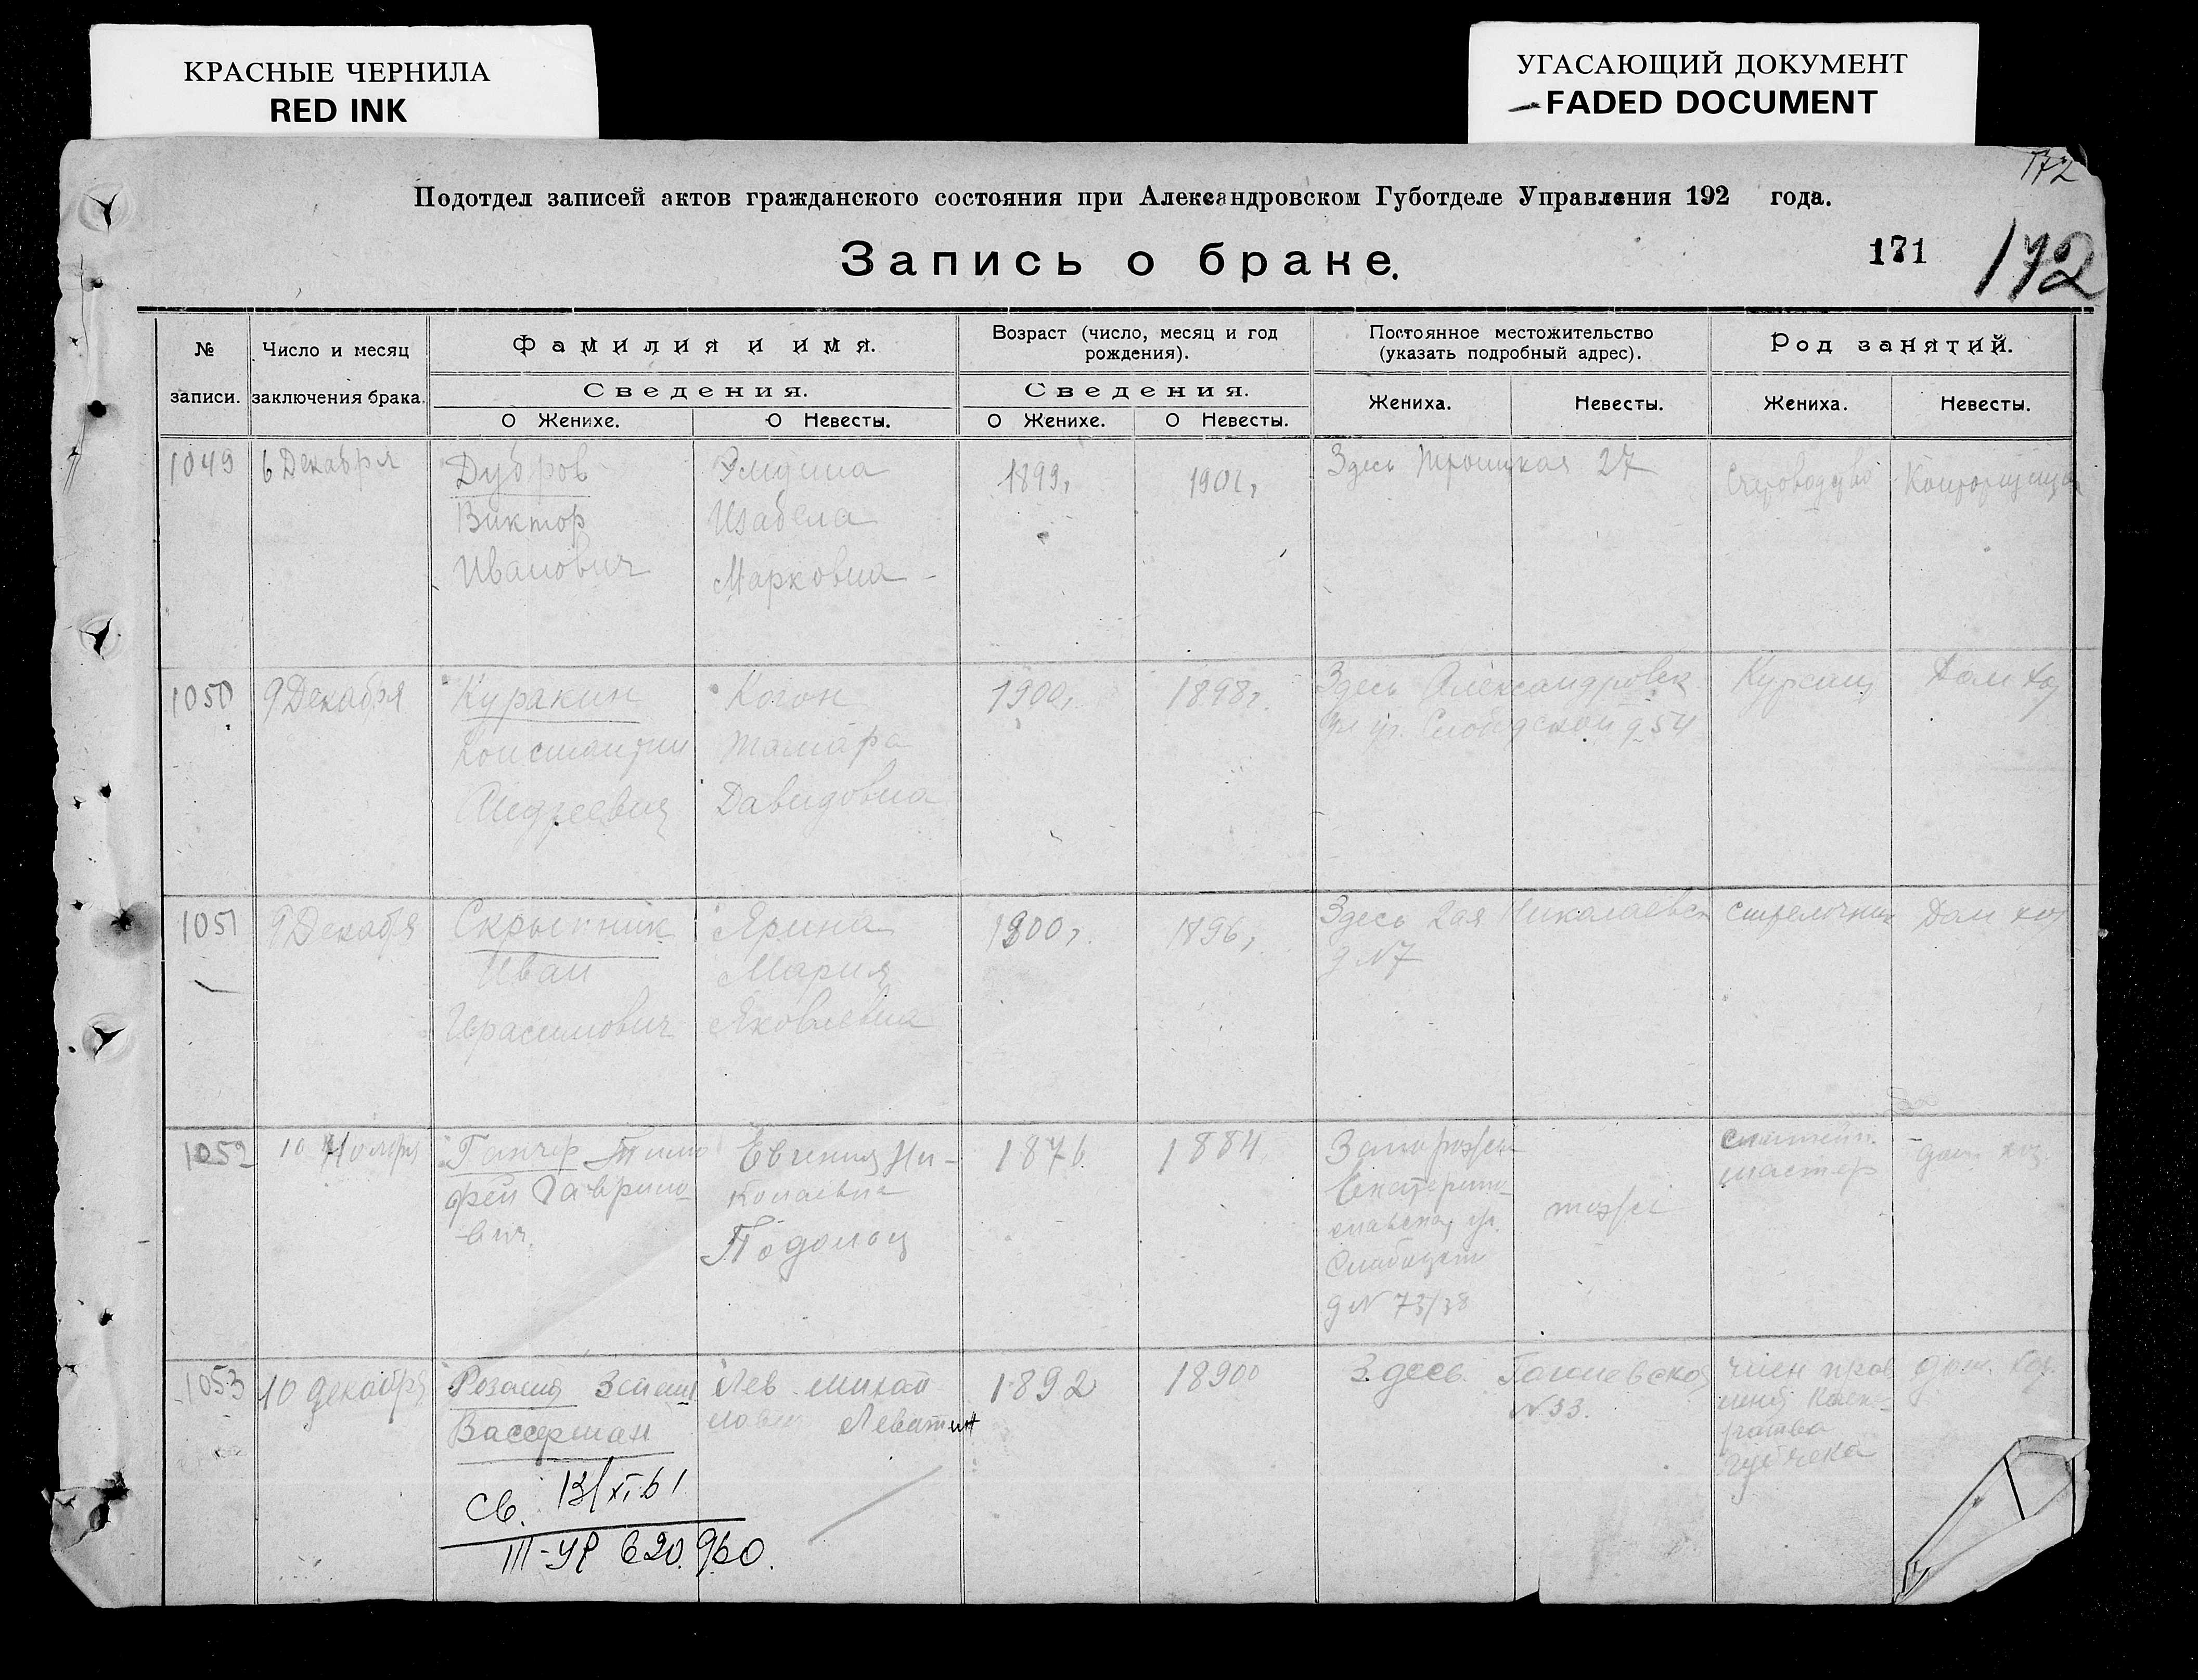 КРАСНЫЕ ЧЕРНИЛА
RED INK
УГАСАЮЩИЙ ДОКУМЕНТ
FADED DOCUMENT
172
Подотдел записей актов гражданского состояния при Александровском Губотделе Управления 192 года.
Запись о браке.
171
172
№ записи.
Число и месяц заключения брака.
Фамилия и имя.
Сведения.
О Женихе.
О Невесты.
Возраст (число, месяц и год рождения).
Сведения.
О Женихе.
О Невесты.
Постоянное местожительство (указать подробный адрес).
Жениха.
Невесты.
Род занятий.
Жениха.
Невесты.
1049
6 Декабря
Дубров
Виктор
Иванович
Изабела
Марковна
1899,
1901,
Здесь Троицкая 27
1050
9 Декабря
Куракин
Константин
Андреевич
Когон
Тамара
Давидовна
1900,
1898,
Здесь Александровск
54
Курсант
Дом хоз
1051
9 Декабря
Скрыпник
Иван
Герасимович
Ярина
Мария
Яковлевна
1900,
1896,
Здесь 2ая Николаевск
д N7
стрелочник
Дом хоз
1052
10 Ноября
Тимо
фей Гаврило
вич.
Евгения Ни-
колаевна
1876
1884
тоже
мастер
дом хоз.
1053
10 декабря
Розалия
Вассерман
Лев
Леватин
1892
18900
Здесь
N 33.
член прав
дом. хоз.
Св. 13/XI.61
III-УР 620.960.